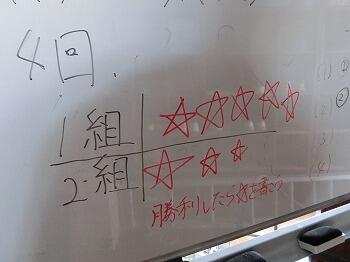 4回
1組 ☆☆☆☆☆
2組 ☆☆☆
勝利したら☆を書こう
(1) ①
(2) ②
(3)
(4)